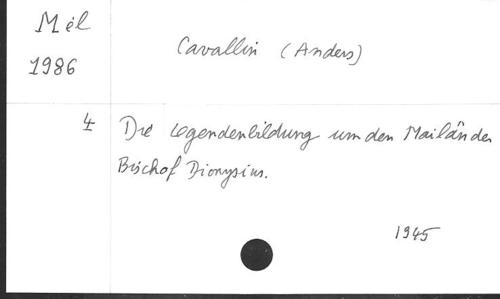 Mél
1986
Cavallin (Anders)
4
Die Legendenbildung um den Mailänder
Bischof Dionysius.
1945